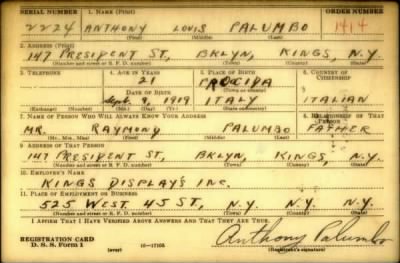 SERIAL NUMBER 1. NAME (Print) ORDER NUMBER
2224 ANTHONY LOUIS PALUMBO 1414
(First) (Middle) (Last)
2. ADDRESS (Print)
147 PRESIDENT ST, BKLYN, KINGS, N.Y.
(Number and street or R. F. D. number) (Town) (County) (State)
3. TELEPHONE 4. AGE IN YEARS 5. PLACE OF BIRTH 6. COUNTRY OF CITIZENSHIP
21 PROCIDA
DATE OF BIRTH (Town or county)
Sept. 9, 1919 ITALY ITALIAN
(Exchange) (Number) (Mo.) (Day) (Yr.) (State or country)
7. NAME OF PERSON WHO WILL ALWAYS KNOW YOUR ADDRESS 8. RELATIONSHIP OF THAT PERSON
MR. RAYMOND PALUMBO FATHER
(Mr., Mrs., Miss) (First) (Middle) (Last)
9. ADDRESS OF THAT PERSON
147 PRESIDENT ST, BKLYN, KINGS, N.Y.
(Number and street or R. F. D. number) (Town) (County) (State)
10. EMPLOYER'S NAME
KINGS DISPLAYS INC.
11. PLACE OF EMPLOYMENT OR BUSINESS
525 WEST 45 ST, N.Y. N.Y. N.Y.
(Number and street or R. F. D. number) (Town) (County) (State)
I AFFIRM THAT I HAVE VERIFIED ABOVE ANSWERS AND THAT THEY ARE TRUE.
REGISTRATION CARD
D. S. S. Form 1 (over) 16—17105 Anthony Palumbo